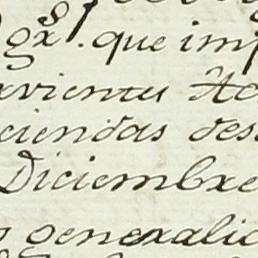 gxˢ. que imp
xvientu Ha
ciendas des
Diciembxe
generalid